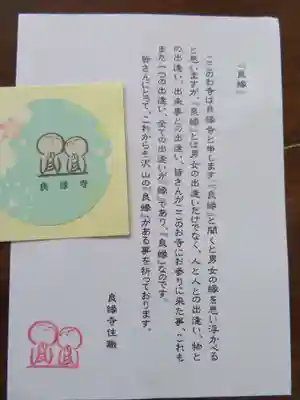 『良縁』
このお寺は良縁寺と申します。『良縁』と聞くと男女の縁を思い浮かべる
と思いますが、『良縁』とは男女の出逢いだけでなく、人と人との出逢い、物と
の出逢い、出来事との出逢い、皆さんがここのお寺にお参りに来た事、これも
また一つの出逢い、全ての出逢いが『縁』であり、『良縁』なのです。
皆さんにとって、これからも沢山の『良縁』がある事を祈っております。
良縁寺住職
良縁寺